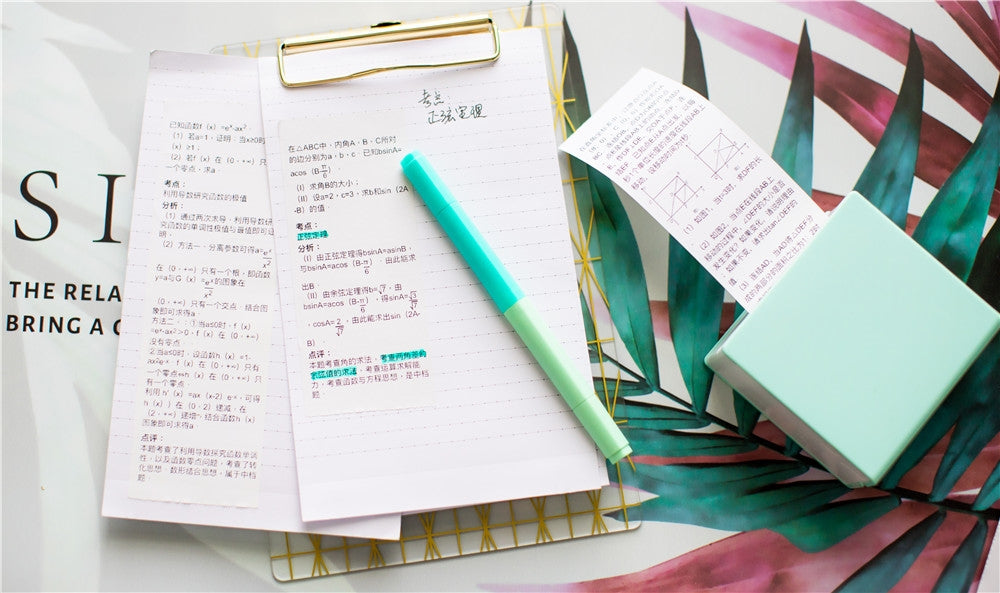 SI
THE RELA
BRING A C
已知函数f（x）=eˣ-ax²．
（1）若a=1，证明：当x≥0时
（x）≥1；
（2）若f（x）在（0，+∞）只
一个零点，求a．
考点：
利用导数研究函数的极值
分析：
（1）通过两次求导，利用导数研
究函数的单调性极值与最值即可证
明，
（2）方法一、分离参数可得a=eˣ/x²
在（0，+∞）只有一个根，即函数
y=a与G（x）=eˣ/x²的图象在
（0，+∞）只有一个交点．结合图
象即可求得a．
方法二：①当a≤0时，f（x）
=eˣ-ax²>0，f（x）在（0，+∞）
没有零点．
②当a≤0时，设函数h（x）=1-
ax²e⁻ˣ．f（x）在（0，+∞）只
有一个零点⇔h（x）在（0，+∞）只
有一个零点．
利用 h′（x）=ax（x-2）e⁻ˣ，可得
h（x））在（0，2）递减，在
（2，+∞）递增，结合函数h（x）
图象即可求得a．
点评：
本题考查了利用导数探究函数单调
性，以及函数零点问题，考查了转
化思想、数形结合思想，属于中档
题．
考点
正弦定理
在△ABC中，内角A，B，C所对
的边分别为a，b，c．已知bsinA=
acos（B-π/6）．
（Ⅰ）求角B的大小；
（Ⅱ）设a=2，c=3，求b和sin（2A
-B）的值．
考点：
正弦定理
分析：
（Ⅰ）由正弦定理得bsinA=asinB，
与bsinA=acos（B-π/6）．由此能求
出B．
（Ⅱ）由余弦定理得b=√7，由
bsinA=acos（B-π/6），得sinA=√3/√7
，cosA=2/√7，由此能求出sin（2A-
B）．
点评：
本题考查角的求法，考查两角差的
余弦值的求法，考查运算求解能
力，考查函数与方程思想，是中档
题．
（1）如图1，当t=3时，求DF的长
（2）如图2，当点E在线段AB上
移动的过程中，∠DEF的大小是否
发生变化？如果变化，请说明理由
如果不变，请求出tan∠DEF的
（3）连结AD，当AD将△DEF分
成的两部分的面积之比为1：2时